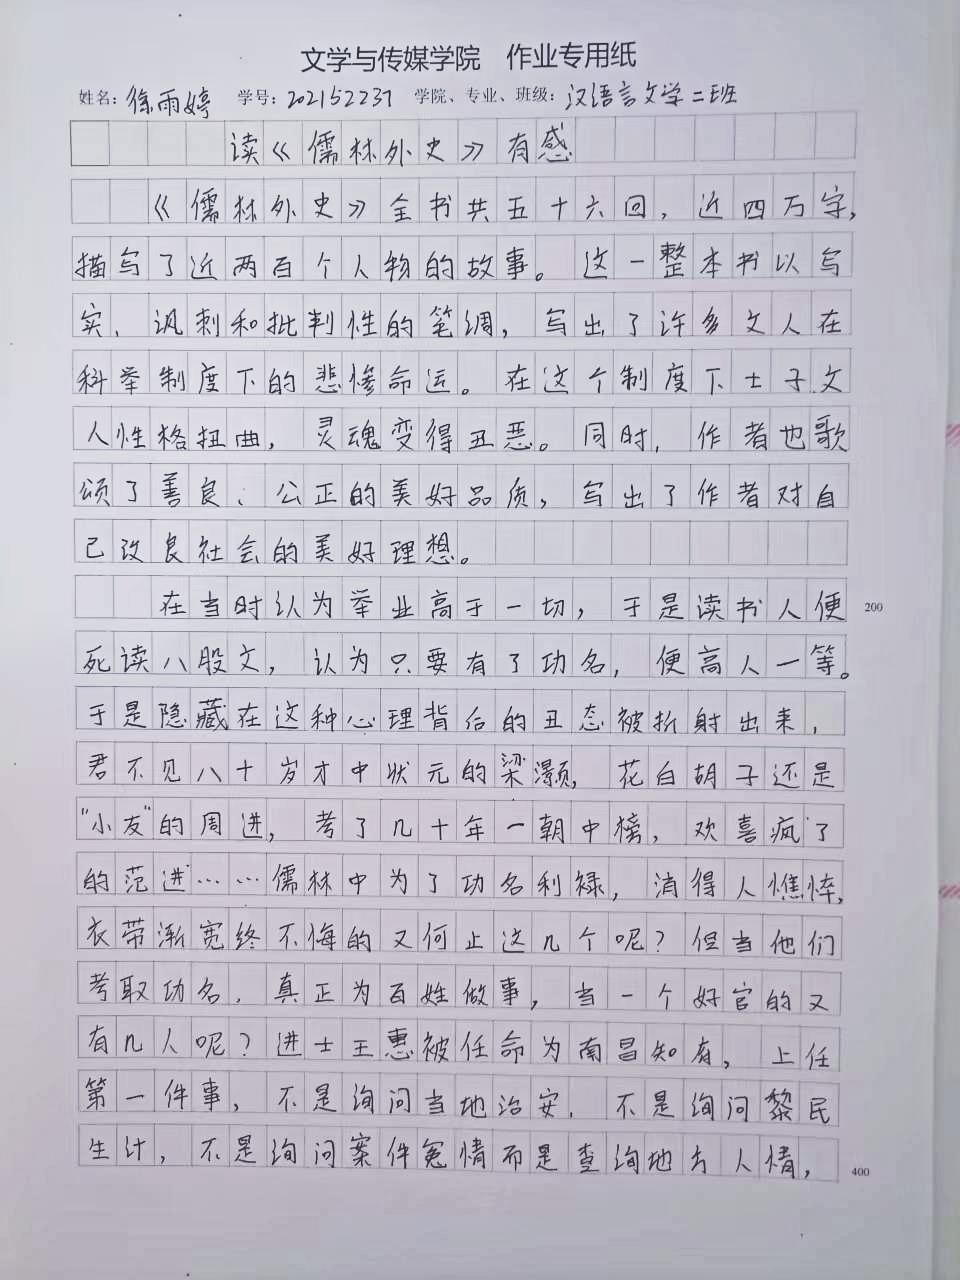 文学与传媒学院 作业专用纸
姓名：徐雨婷 学号：202152237 学院、专业、班级：汉语言文学二班
读《儒林外史》有感
《儒林外史》全书共五十六回，近四万字，
描写了近两百个人物的故事。这一整本书以写
实、讽刺和批判性的笔调，写出了许多文人在
科举制度下的悲惨命运。在这个制度下士子文
人性格扭曲，灵魂变得丑恶。同时，作者也歌
颂了善良、公正的美好品质，写出了作者对自
己改良社会的美好理想。
在当时认为举业高于一切，于是读书人便 200
死读八股文，认为只要有了功名，便高人一等。
于是隐藏在这种心理背后的丑态被折射出来，
君不见八十岁才中状元的梁灏，花白胡子还是
“小友”的周进，考了几十年一朝中榜，欢喜疯了
的范进……儒林中为了功名利禄，消得人憔悴，
衣带渐宽终不悔的又何止这几个呢？但当他们
考取功名，真正为百姓做事，当一个好官的又
有几人呢？进士王惠被任命为南昌知府，上任
第一件事，不是询问当地治安，不是询问黎民
生计，不是询问案件冤情而是查询地方人情， 400